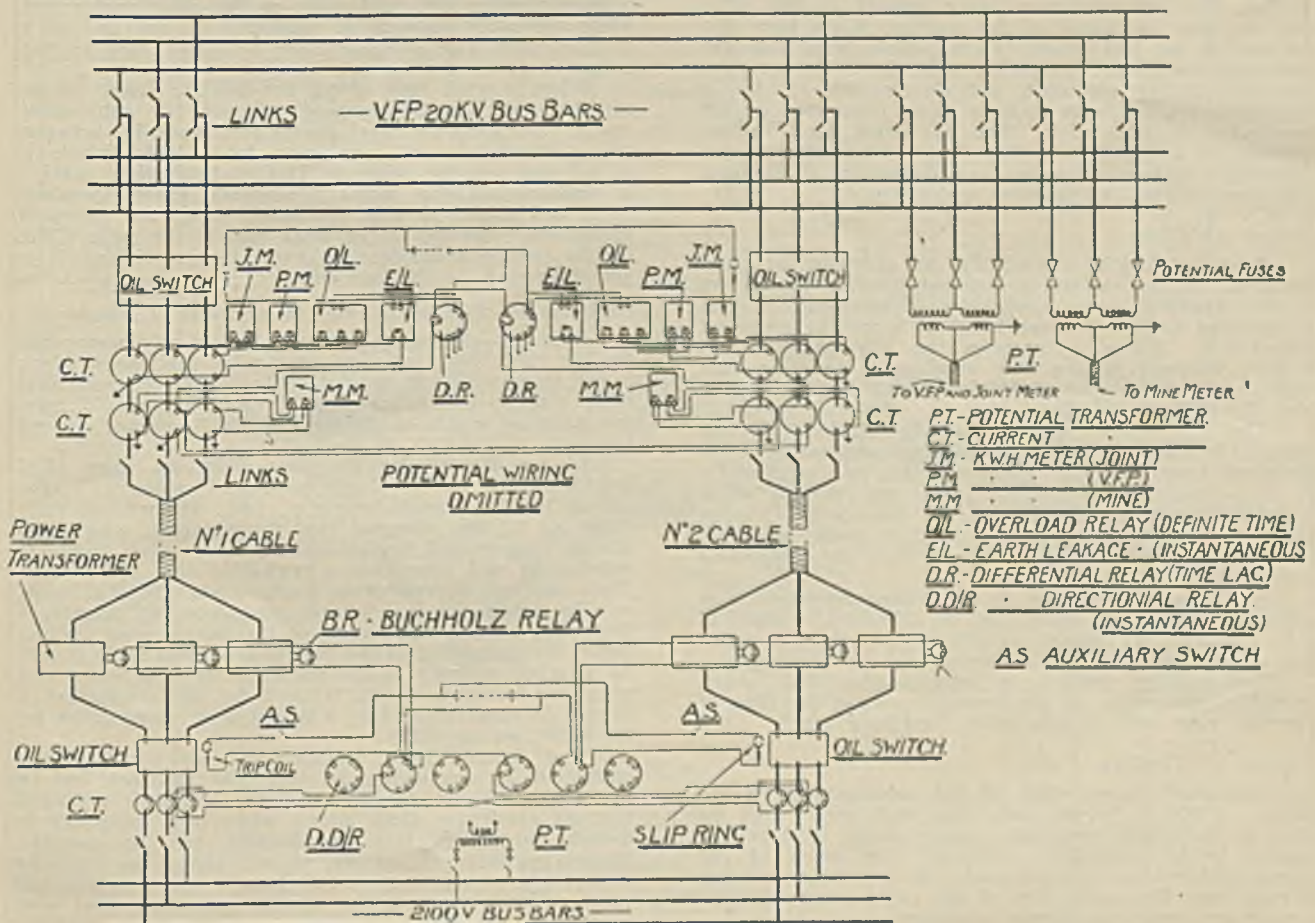 LINKS
— V.F.P 20 K.V. BUS BARS. —
J.M.
P.M.
O/L.
E/L.
E/L.
O/L.
P.M.
J.M.
OIL SWITCH
OIL SWITCH
POTENTIAL FUSES
C.T.
D.R.
D.R.
C.T.
P.T.
M.M.
M.M.
TO V.F.P AND JOINT METER
TO MINE METER
C.T.
C.T.
LINKS
POTENTIAL WIRING
OMITTED
P.T.-POTENTIAL TRANSFORMER.
C.T-CURRENT "
J.M. - K.W.H METER (JOINT)
P.M " " (V.F.P.)
M.M " " (MINE)
O/L.-OVERLOAD RELAY (DEFINITE TIME)
E/L - EARTH LEAKAGE " (INSTANTANEOUS
D.R.-DIFFERENTIAL RELAY (TIME LAG)
D.D/R " DIRECTIONIAL RELAY.
(INSTANTANEOUS)
A.S AUXILIARY SWITCH
POWER
TRANSFORMER
Nº1 CABLE
Nº2 CABLE
B.R - BUCHHOLZ RELAY
A.S.
A.S.
OIL SWITCH
TRIP COIL
OIL SWITCH.
C.T.
D.D/R.
P.T.
SLIP RING
— 2100 V BUS BARS —